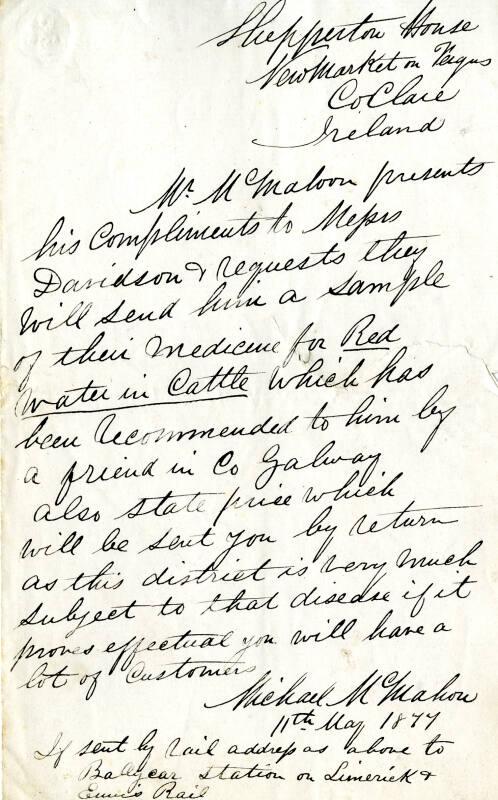 Shepperton House
NewMarket on Fergus
Co Clare
Ireland
Mr. McMahon presents
his Compliments to Messrs
Davidson & requests they
will send him a sample
of their medicine for Red
Water in Cattle which has
been recommended to him by
a friend in Co Galway
also state price which
will be sent you by return
as this district is very much
subject to that disease if it
proves effectual you will have a
lot of Customers
Michael McMahon
11th May 1877
If sent by rail address as above to
Ballycar Station on Limerick &
Ennis Rail